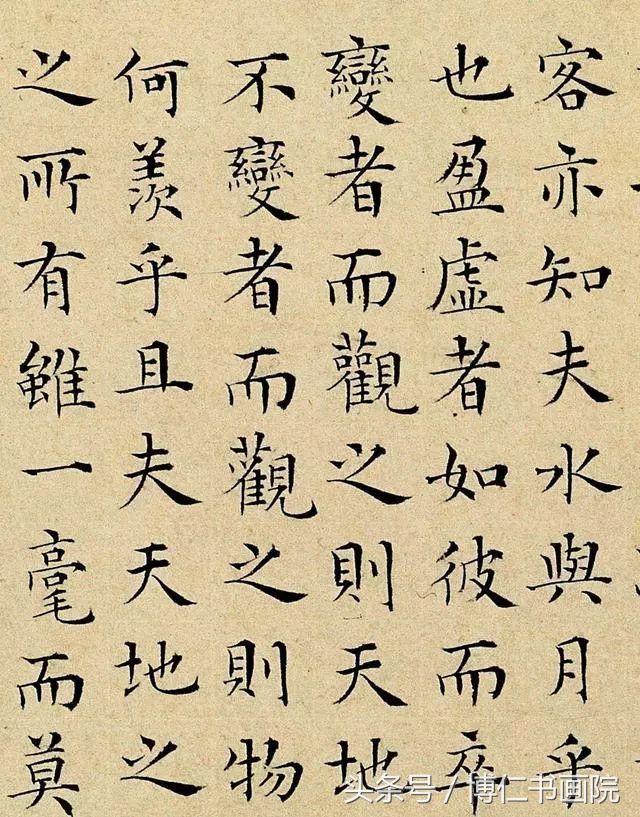 客亦知夫水與月乎
也盈虛者如彼而卒
變者而觀之則天地
不變者而觀之則物
何羨乎且夫天地之
之所有雖一毫而莫
头条号/博仁书画院